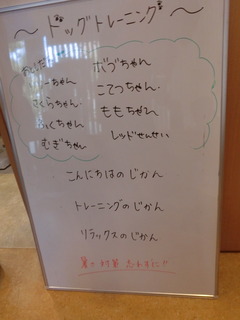 ～ドッグトレーニング～
ちゃん
さくらちゃん
ふくちゃん
むぎちゃん
ボブちゃん
こてつちゃん
ももちゃん
レッドせんせい
こんにちはのじかん
トレーニングのじかん
リラックスのじかん
暑さ対策 忘れずに!!